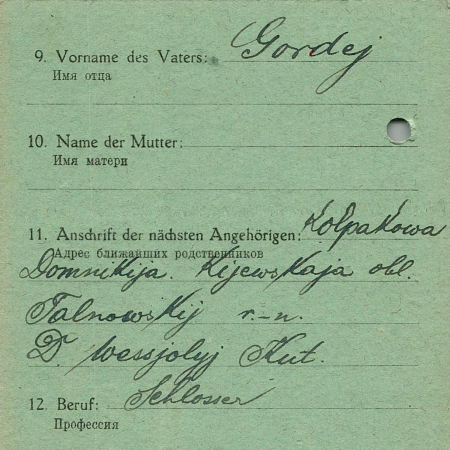 9. Vorname des Vaters: Gordej
Имя отца
10. Name der Mutter:
Имя матери
11. Anschrift der nächsten Angehörigen: Kolpakowa
Адрес ближайших родственников
Domnikija. Kijewskaja obl.
Talnowskij r.-n.
D. Wessjolyj Kut.
12. Beruf: Schlosser
Профессия